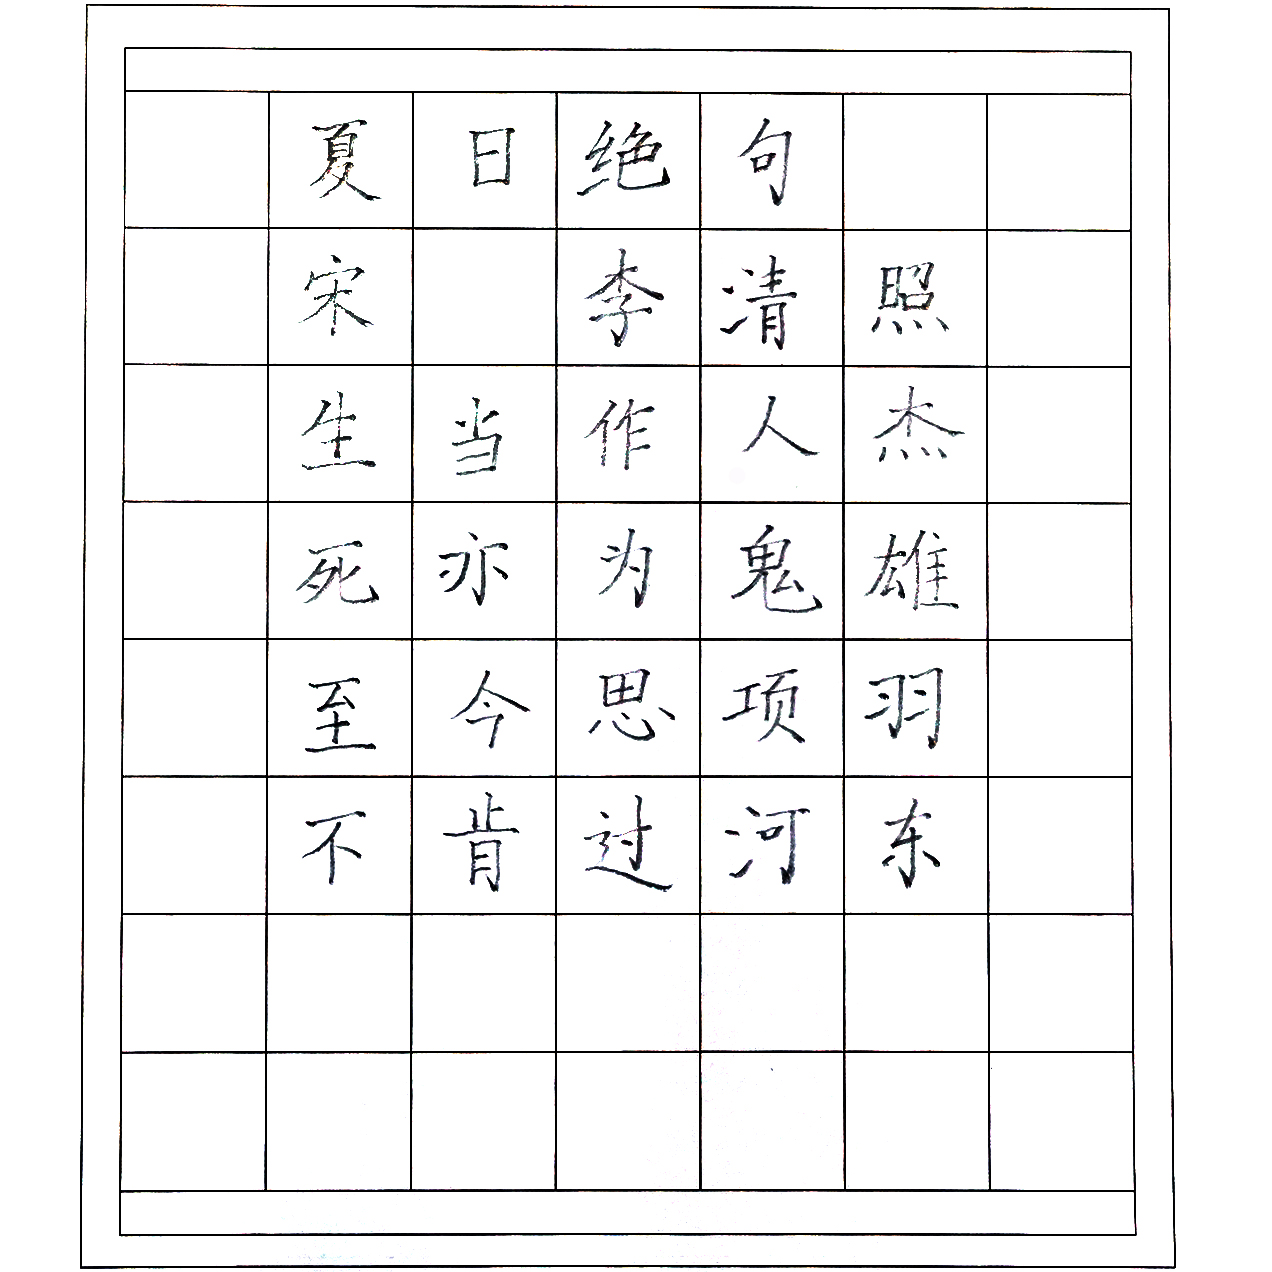 夏日绝句
宋 李清照
生当作人杰
死亦为鬼雄
至今思项羽
不肯过河东